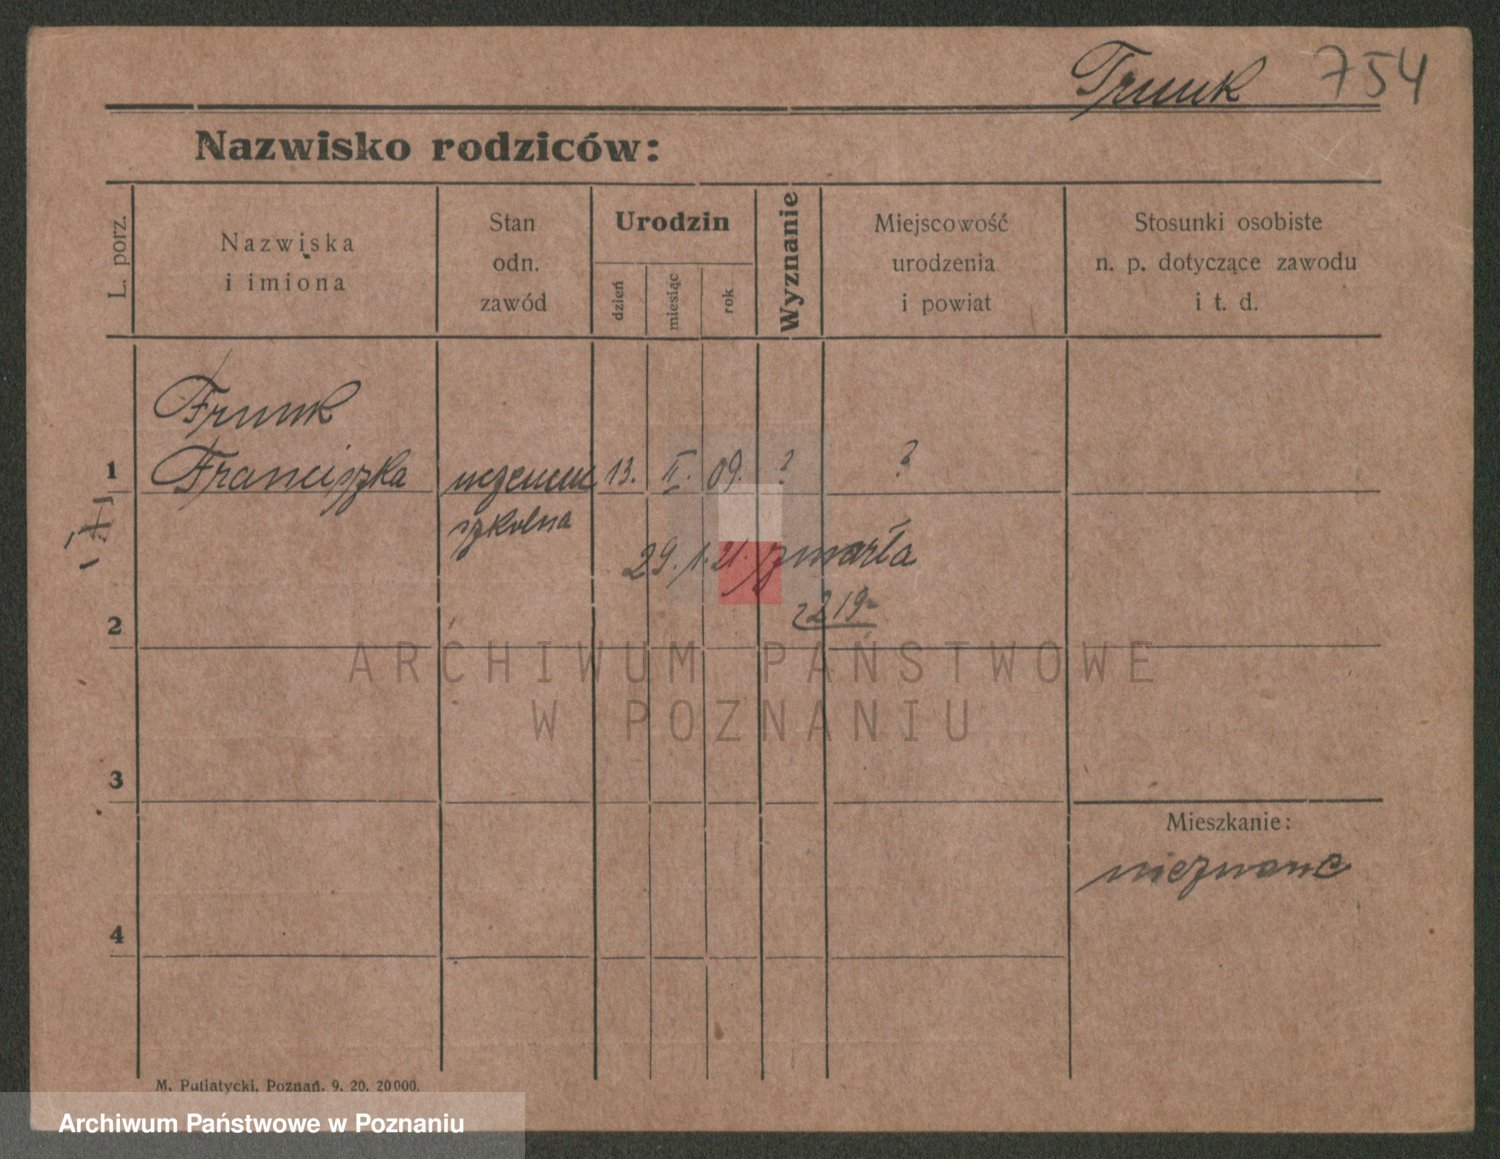 Trunk 754
Nazwisko rodziców:
L. porz.
Nazwiska
i imiona
Stan
odn.
zawód
Urodzin
dzień
miesiąc
rok
Wyznanie
Miejscowość
urodzenia
i powiat
Stosunki osobiste
n. p. dotyczące zawodu
i t. d.
Trunk
1 Franciszka 13. II. 09. ? ?
szkolna
29. 1. 21. zmarła
219
2
ARCHIWUM PAŃSTWOWE
W POZNANIU
3
Mieszkanie:
nieznane
4
M. Putiatycki, Poznań. 9. 20. 20 000.
Archiwum Państwowe w Poznaniu